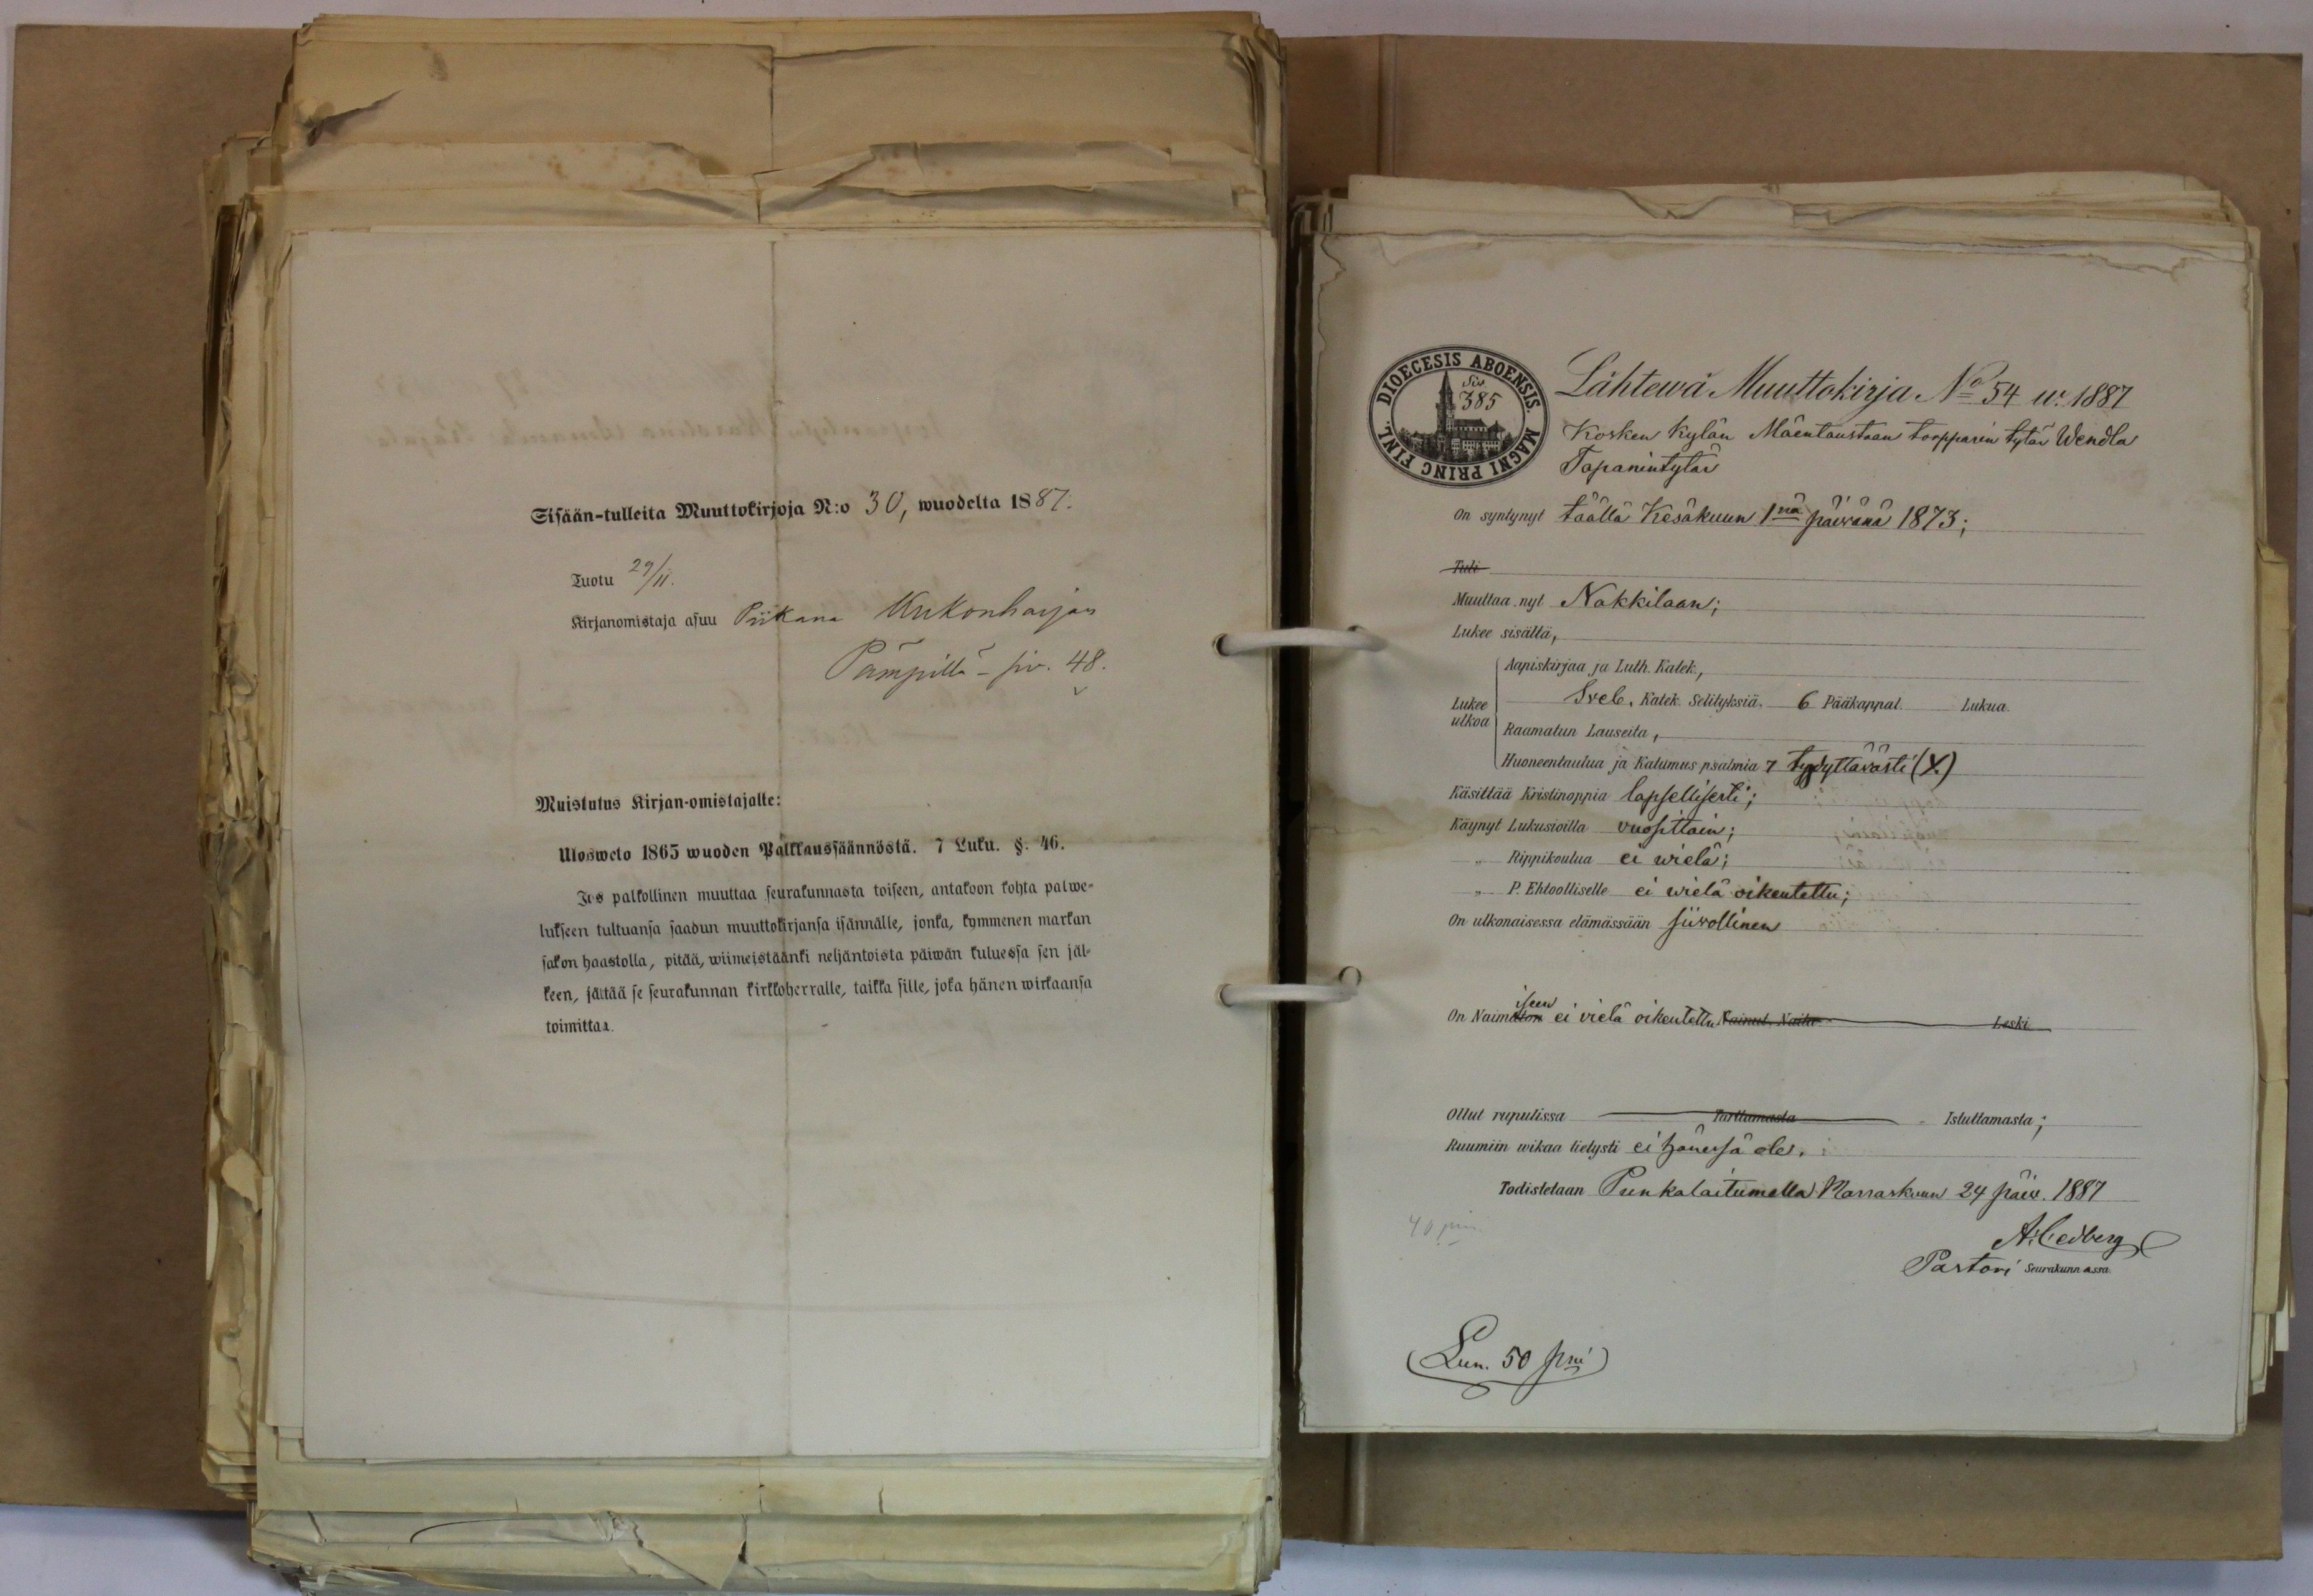 Sisään-tulleita Muuttokirjoja N:o 30, wuodelta 1887.
Tuotu 29/11.
Kirjanomistaja asuu Piikana Kukonharjan
Pämpillä - siv. 48.
Muistutus Kirjan-omistajalle:
Ulosweto 1865 wuoden Palkkaussäännöstä. 7 Luku. §. 46.
Jos palkollinen muuttaa seurakunnasta toiseen, antakoon kohta palwe-
lukseen tultuansa saadun muuttokirjansa isännälle, jonka, kymmenen markan
sakon haastolla, pitää, wiimeistäänki neljäntoista päiwän kuluessa sen jäl-
keen, jättää se seurakunnan kirkkoherralle, taikka sille, joka hänen wirkaansa
toimittaa.
DIOECESIS ABOENSIS. MAGNI PRINC FINL.
Siv.
385
Lähtewä Muuttokirja No 54 w. 1887
Kosken kylän Mäentaustaan torpparin tytär Wendla
Tapanintytär
On syntynyt täällä Kesäkuun 1nä päiwänä 1873;
Tuli
Muuttaa nyt Nakkilaan;
Lukee sisältä,
Aapiskirjaa ja Luth. Katek.,
Lukee ulkoa
Sveb. Katek. Selityksiä. 6 Pääkappal. Lukua.
Raamatun Lauseita,
Huoneentaulua ja Katumus psalmia 7 tyydyttävästi (X)
Käsittää Kristinoppia lapsellisesti;
Käynyt Lukusioilla vuosittain;
„ Rippikoulua ei wielä;
„ P. Ehtoolliselle ei wielä oikeutettu;
On ulkonaisessa elämässään siivollinen
iseen
On Naimaton ei vielä oikeutettu Nainut, Naitu Leski
Ollut rupulissa Tarttumasta Istuttamasta;
Ruumiin wikaa tietysti ei hänessä ole.
Todistetaan Punkalaitumella Marraskuun 24 päiw. 1887
40 pni
A. Cedberg
Pastori Seurakunnassa
(Lun. 50 pni)